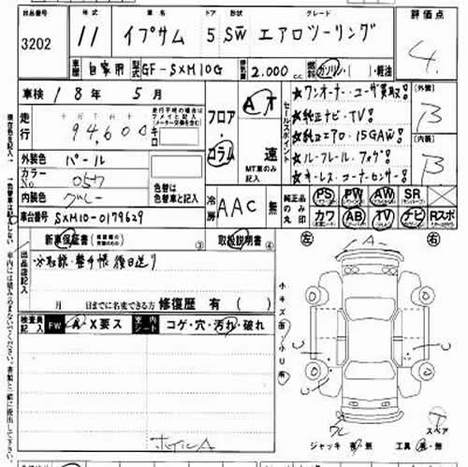 出品番号 年式 車名 ドア 形状 グレード 評価点
3202 11 イプサム 5 SW エアロツーリング 4
車歴 自家用 型式 GF-SXM10G 排気量 2.000 cc ガソリン・軽油
車検 18年 5月
走行 94,600 キロ
フロア・コラム
A オ 速 MT車のみ記入
セールスポイント
★ワンオーナー・ユーザー買取!
★純正ナビ・TV!
★純正エアロ・15GAW!
★ルーフレール・フォグ!
★キーレス・コーナーセンサー!
【外装】 B
【内装】 B
外装色 パール
カラーNo 057
内装色 グレー
色替は色替車と記入
冷房 AAC 無
純正品のみ○印
PS PW AW SR
カワ AB TV ナビ Rスポ
車台番号 SXM10-0179629
新車保証書 ③ 取扱説明書 ④
出品店記入
※取録・整手帳 後日送り
月 日までに名変できる方 修復歴 有 ( )
検査員記入 FW A・X要ス 車内シート コゲ・穴・汚れ・破れ
ホイルA
左 右
A
小キズ有 小U有
C C
スペア
ジャッキ 有・無 工具 有・無